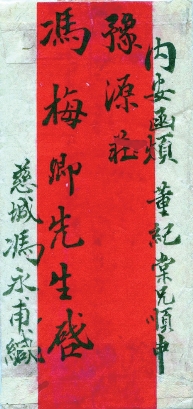 內安函煩 董紀棠兄順申
豫源莊
馮梅卿先生啓
慈城馮永甫緘